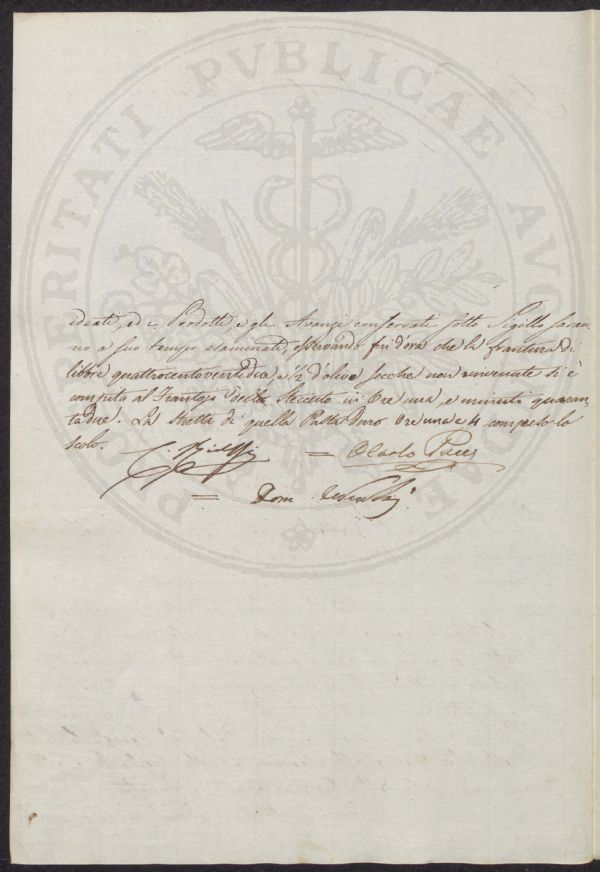 PROSPERITATI PVBLICAE AVGENDAE
ideati, ed i Prodotti, e gli Avanzi conservati sotto Sigillo saran=
no a suo tempo esaminati, osservando fin d'ora che la frantura di
libbre quattrocentoventidue, e ½ d'olive secche non rinvenute si è
compita al Frantojo dello Steccuto in Ore una, e minuti quaran=
tadue. La stretta di quella Pasta duro Ore una e 4 compreso lo
scolo.
= Paolo Pucci
= Dom